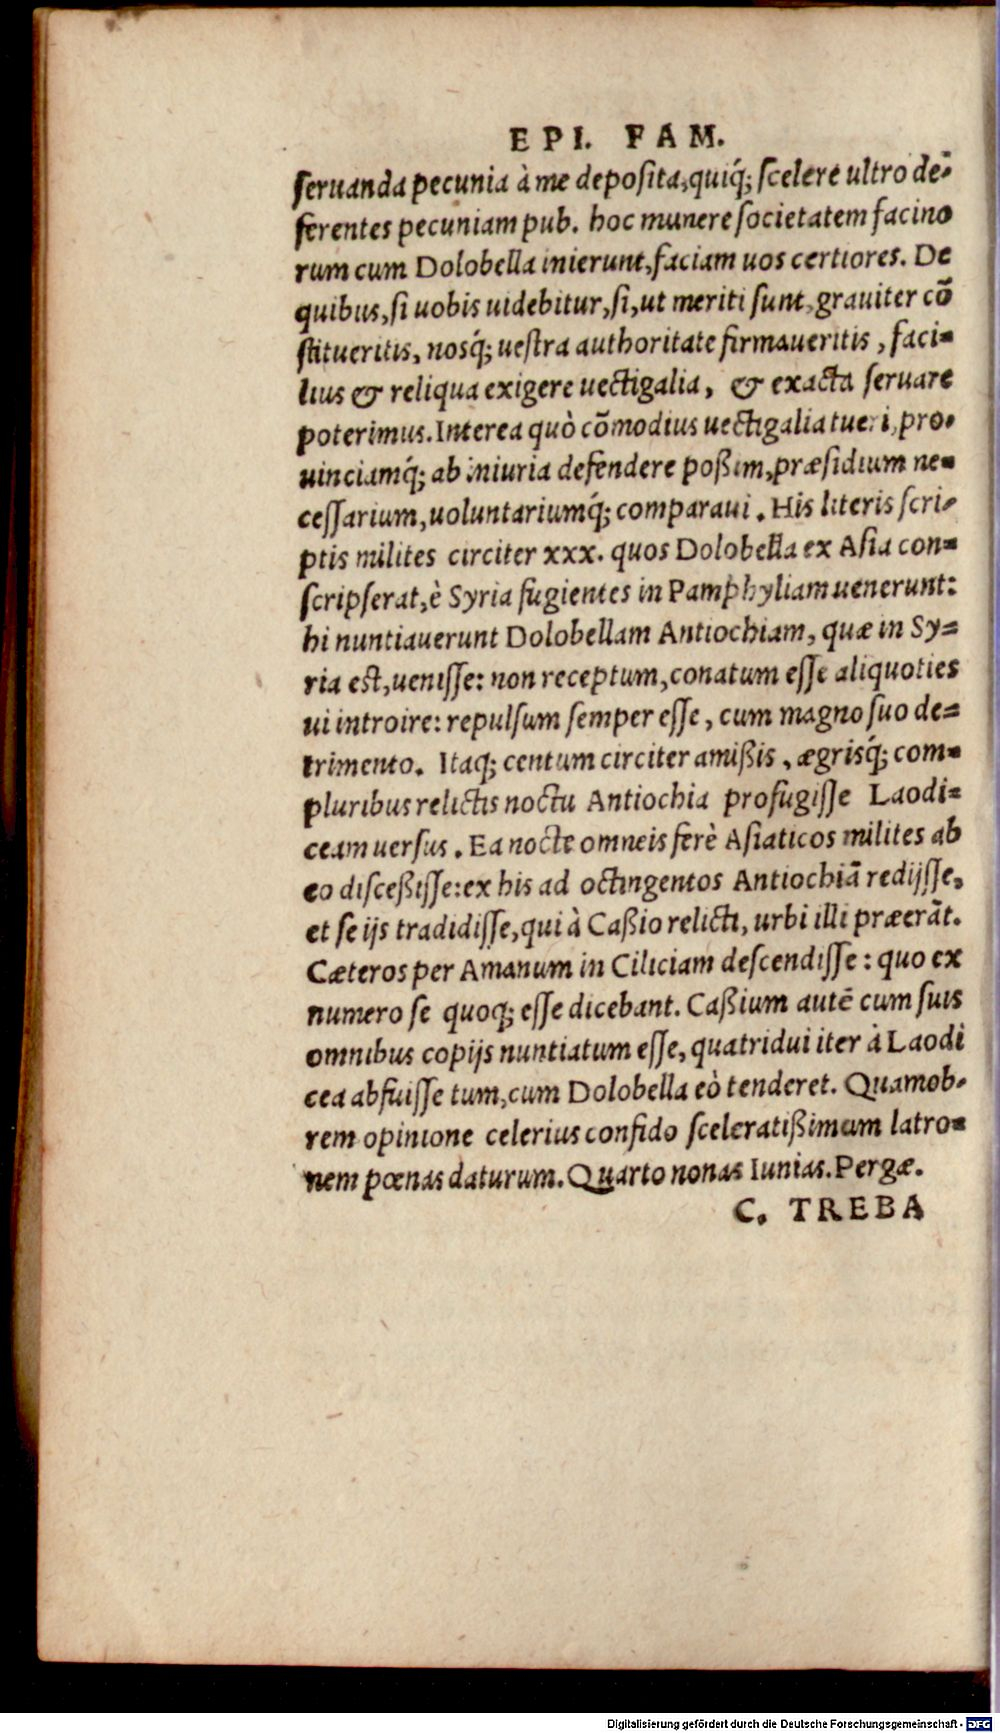 EPI. FAM.
seruanda pecunia à me deposita, quiq́; scelere ultro de-
ferentes pecuniam pub. hoc munere societatem facino
rum cum Dolobella inierunt, faciam uos certiores. De
quibus, si uobis uidebitur, si, ut meriti sunt, grauiter cō
stitueritis, nosq́; uestra authoritate firmaueritis, faci=
lius & reliqua exigere uectigalia, & exacta seruare
poterimus. Interea quò cōmodius uectigalia tueri, pro-
uinciamq́; ab iniuria defendere poßim, præsidium ne=
cessarium, uoluntariumq́; comparaui. His literis scri-
ptis milites circiter xxx. quos Dolobella ex Asia con=
scripserat, è Syria fugientes in Pamphyliam uenerunt:
hi nuntiauerunt Dolobellam Antiochiam, quæ in Sy=
ria est, uenisse: non receptum, conatum esse aliquoties
ui introire: repulsum semper esse, cum magno suo de=
trimento. Itaq; centum circiter amißis, ægrisq́; com=
pluribus relictis noctu Antiochia profugisse Laodi=
ceam uersus. Ea nocte omneis ferè Asiaticos milites ab
eo disceßisse: ex his ad octingentos Antiochiā redijsse,
et se ijs tradidisse, qui à Caßio relicti, urbi illi præerāt.
Cæteros per Amanum in Ciliciam descendisse: quo ex
numero se quoq; esse dicebant. Caßium autē cum suis
omnibus copijs nuntiatum esse, quatridui iter à Laodi
cea abfuisse tum, cum Dolobella eò tenderet. Quamob-
rem opinione celerius confido sceleratißimum latro=
nem pœnas daturum. Quarto nonas Iunias. Pergæ.
C. TREBA
Digitalisierung gefördert durch die Deutsche Forschungsgemeinschaft - DFG